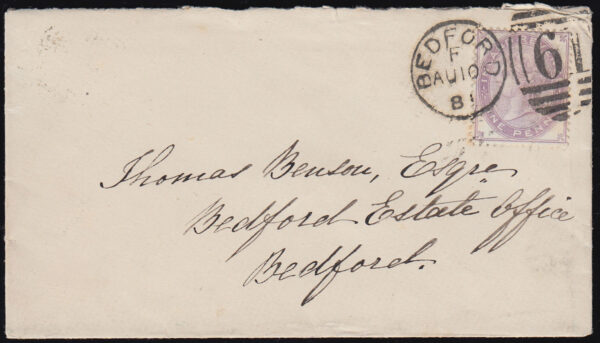 BEDFORD
F
AU 10
81
61
ONE PENNY
Thomas Benson, Esqre
Bedford Estate Office
Bedford.